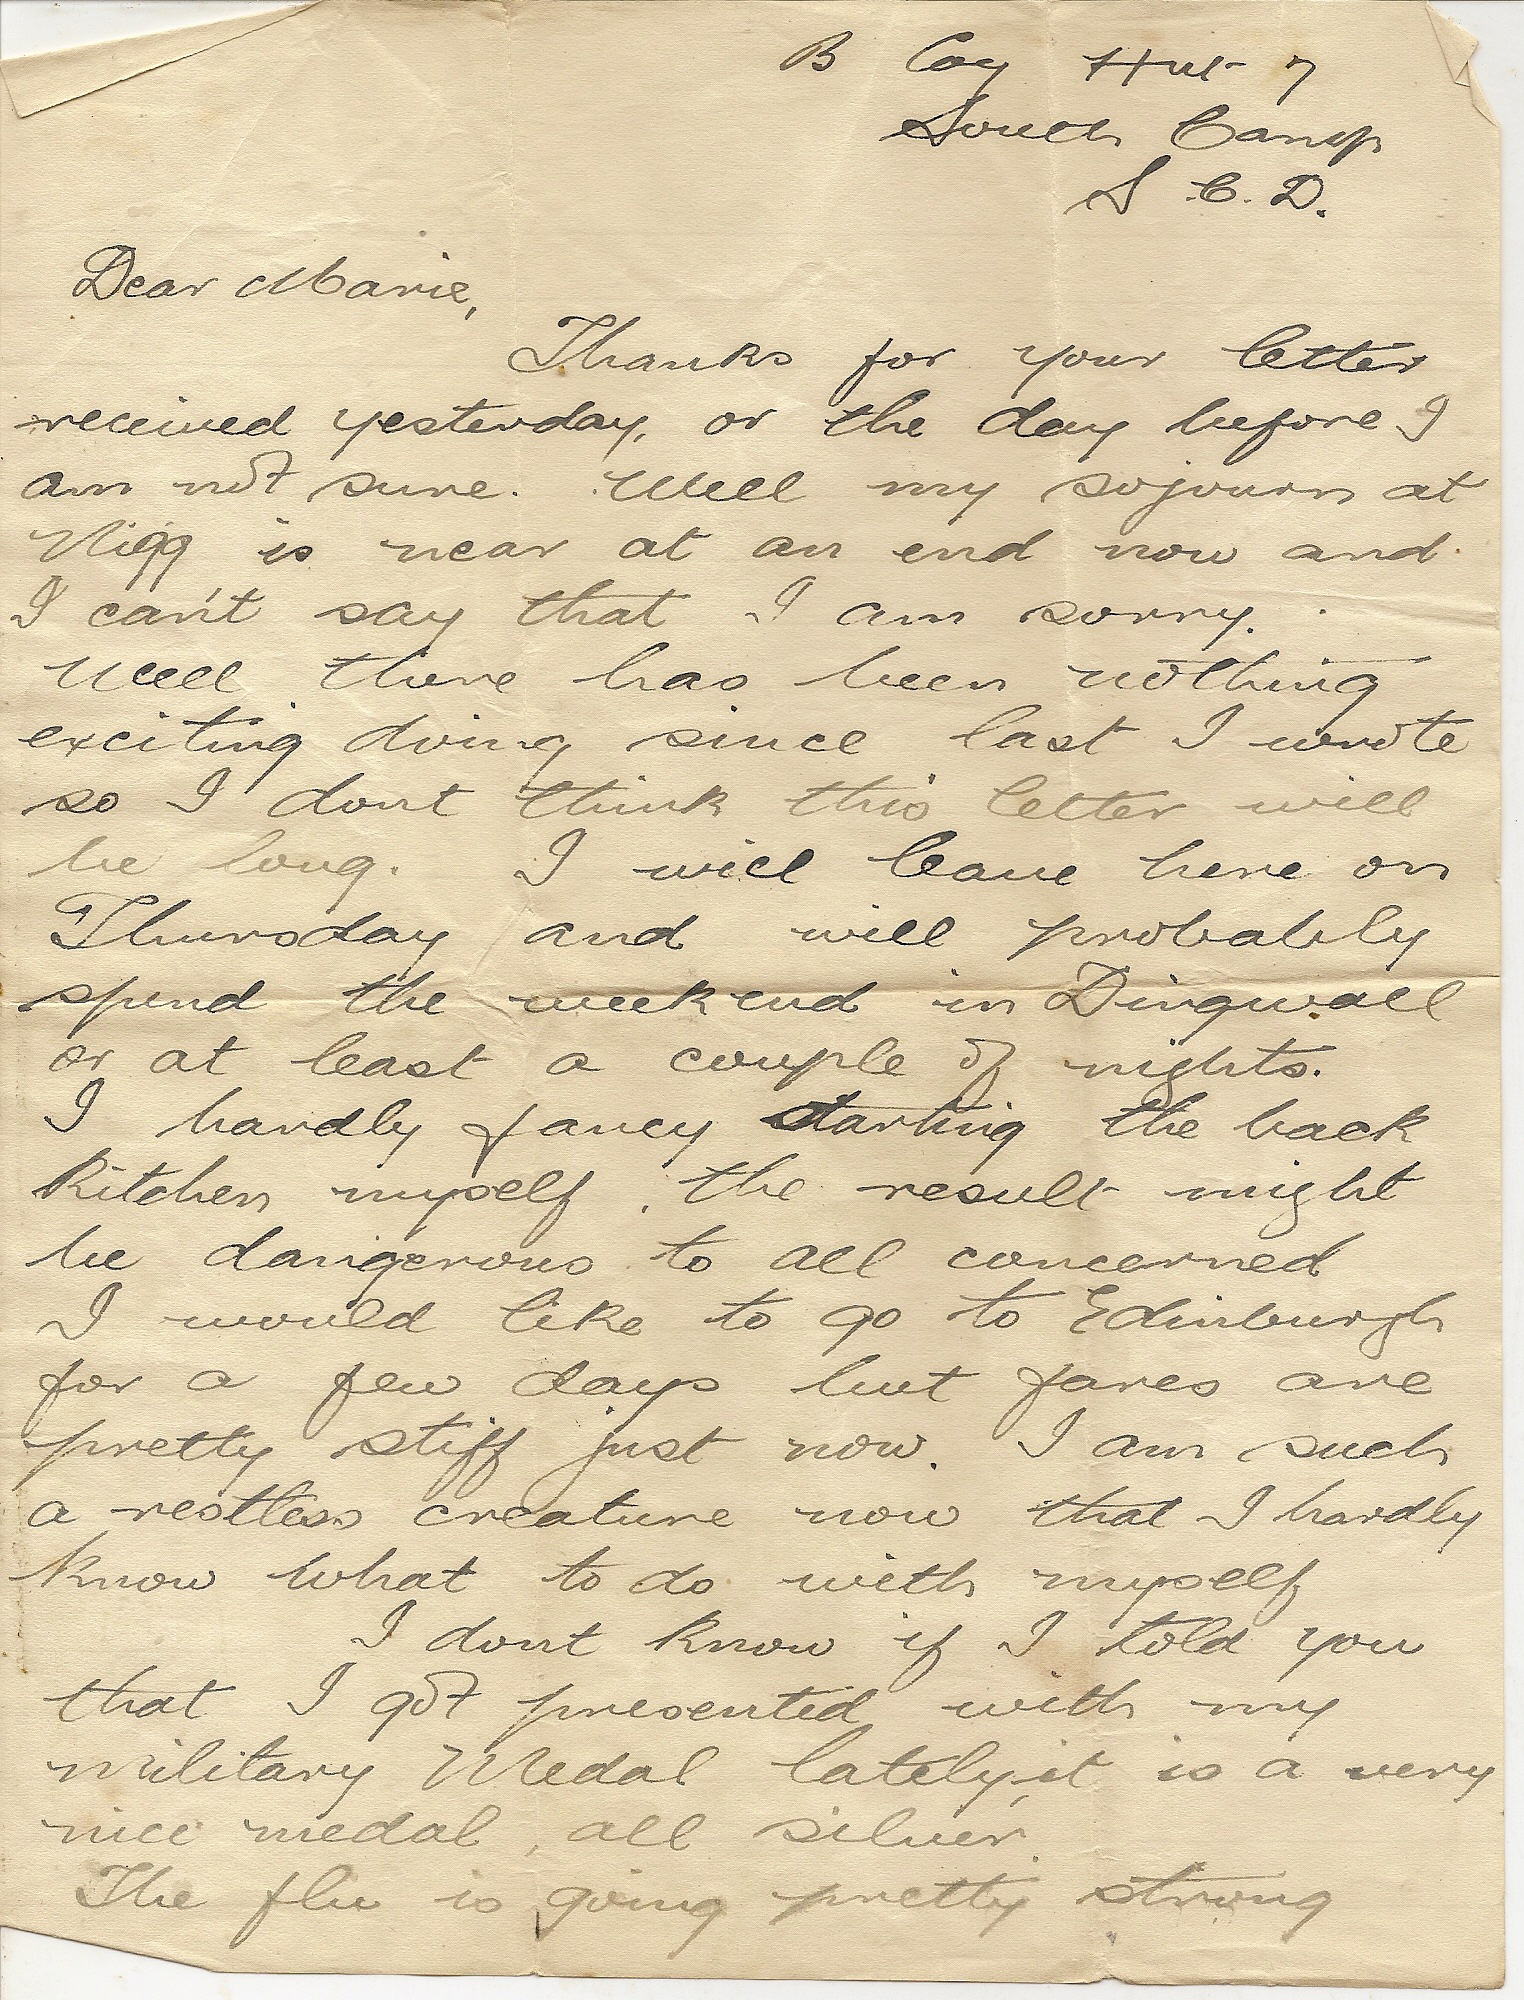 B Coy Hut 7
South Camp
S C. D.
Dear Marie,
Thanks for your letter
received yesterday, or the day before I
am not sure. Well my sojourn at
Nigg is near at an end now and
I can't say that I am sorry.
Well there has been nothing
exciting doing since last I wrote
so I dont think this letter will
be long. I will leave here on
Thursday and will probably
spend the weekend in Dingwall
or at least a couple of nights.
I hardly fancy starting the back
kitchen myself, the result might
be dangerous to all concerned
I would like to go to Edinburgh
for a few days but fares are
pretty stiff just now. I am such
a restless creature now that I hardly
know what to do with myself
I dont know if I told you
that I got presented with my
military Medal lately, it is a very
nice medal, all silver.
The flu is going pretty strong